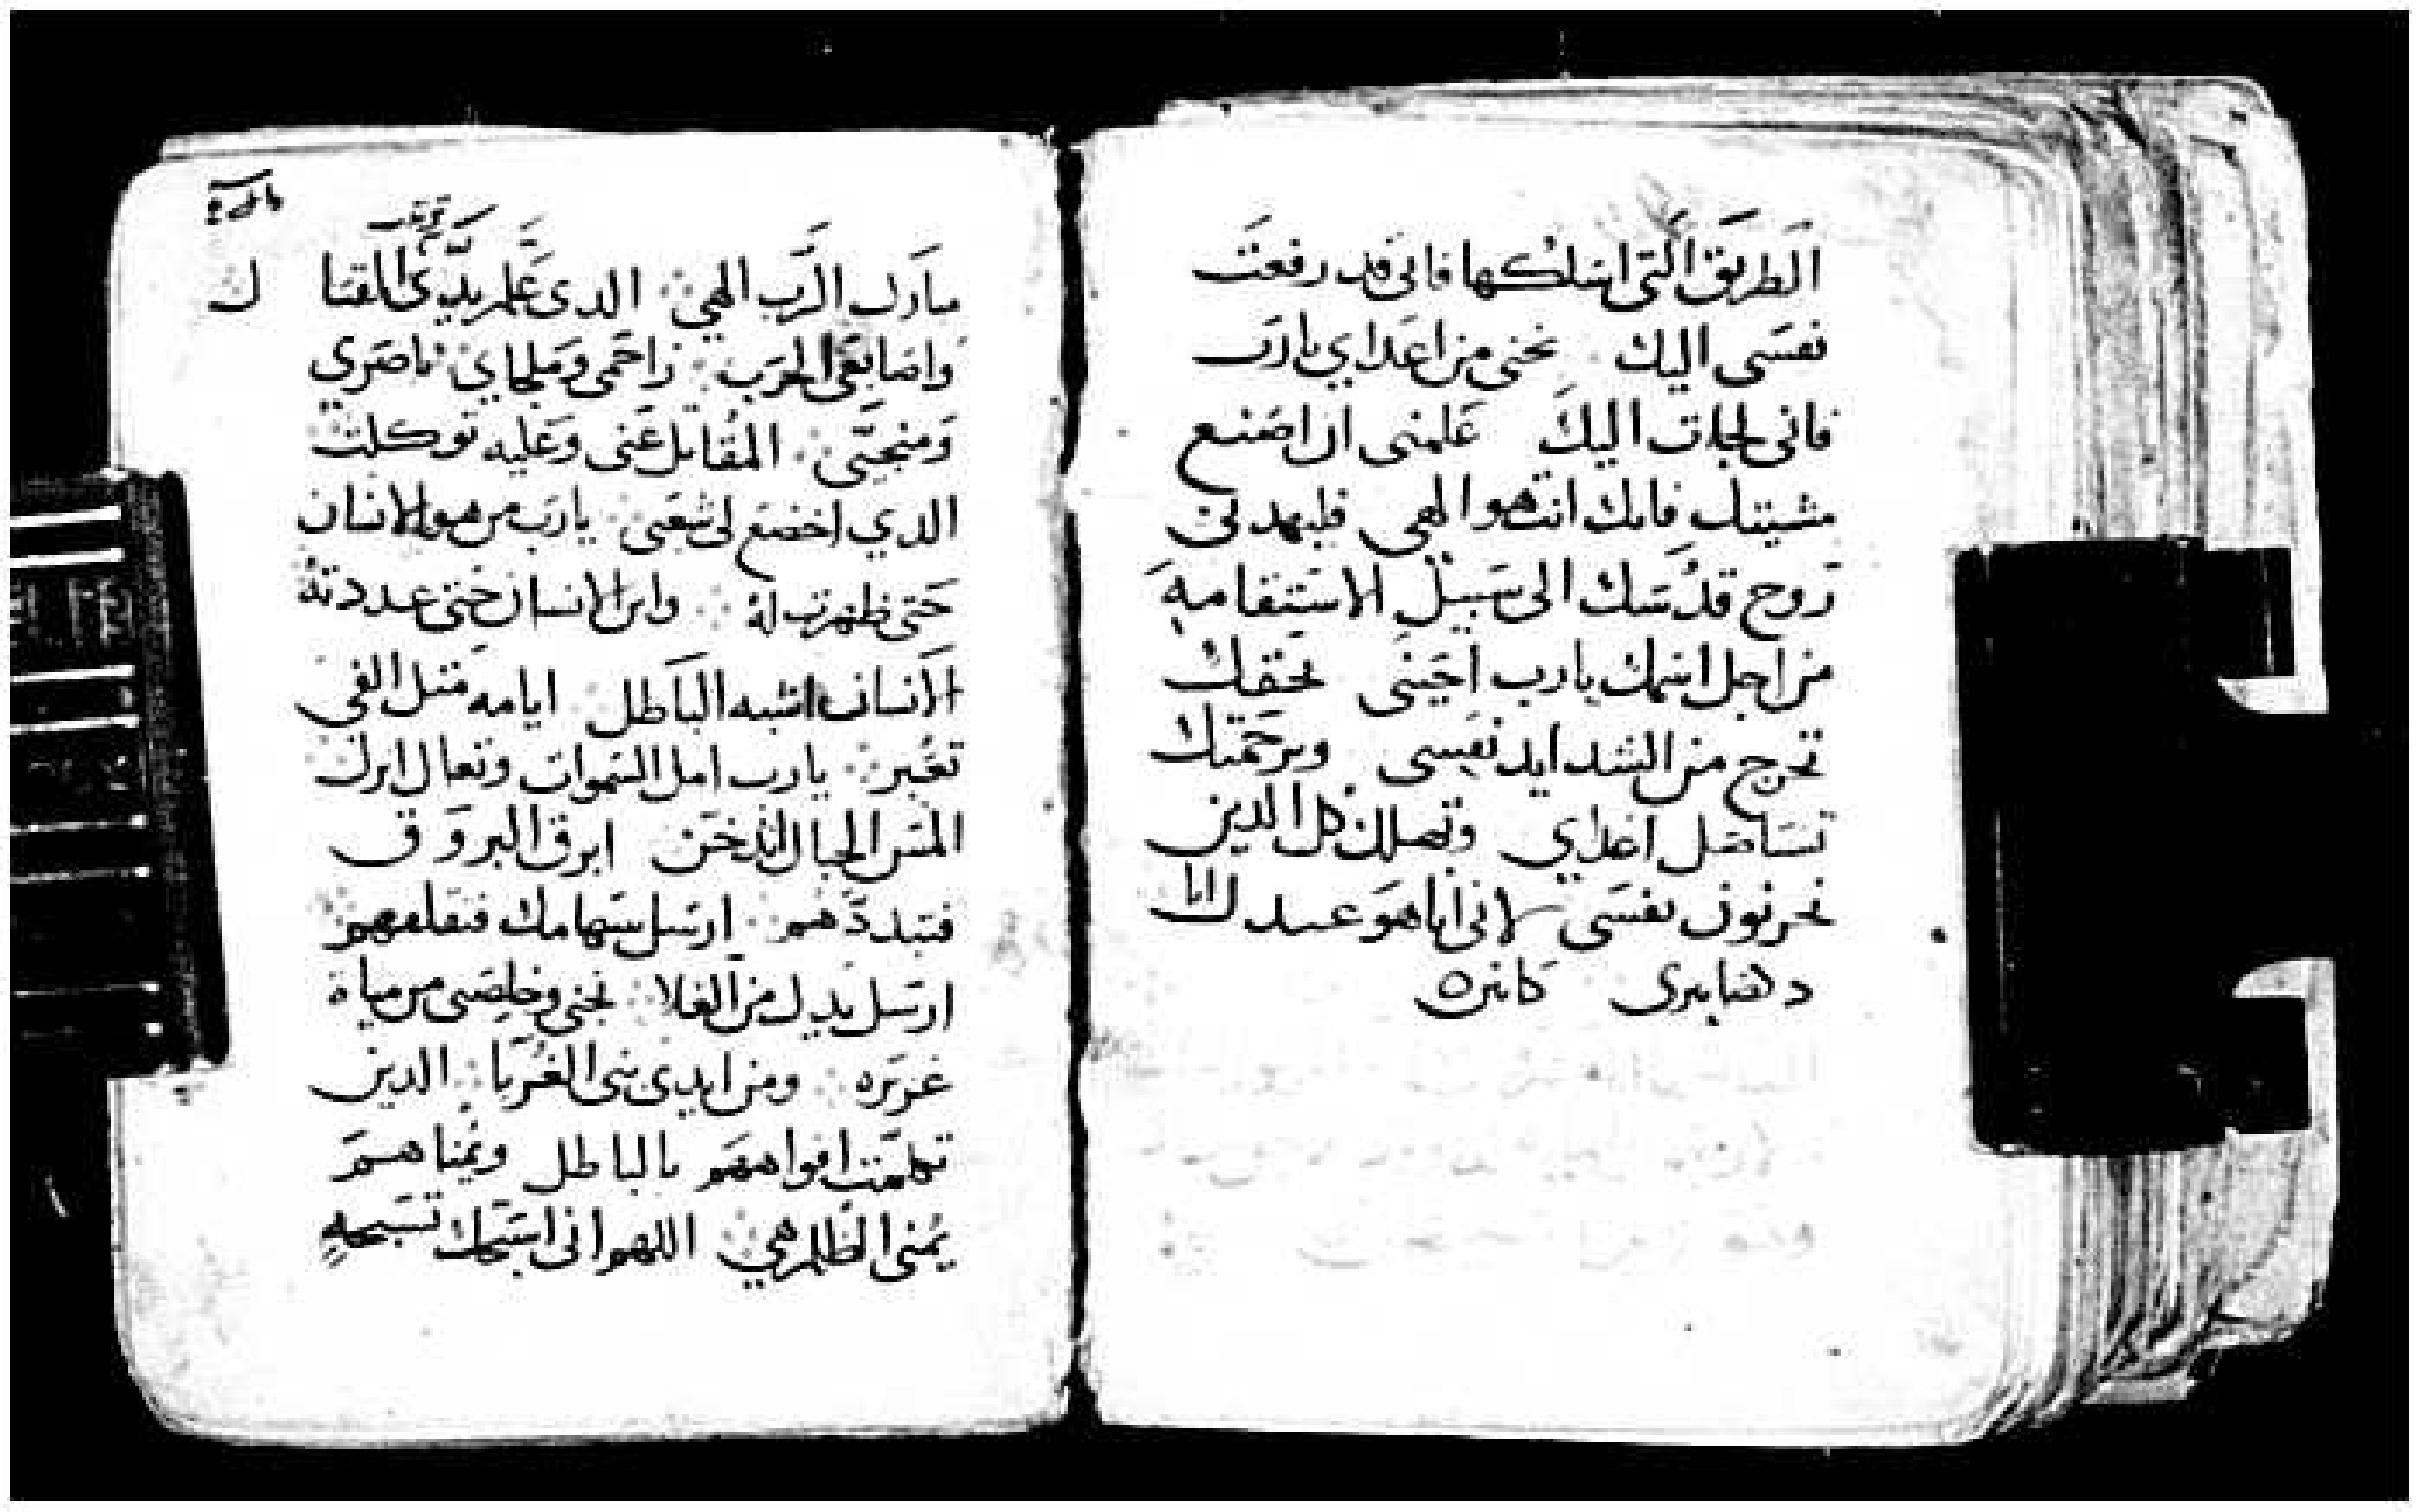 الطريق التى اسلكها فانى قد رفعت
نفسى اليك نجنى من اعداي يارب
فانى لجات اليك علمنى ان اصنع
مشيتك فانك انت هو الهى فليهدنى
روح قدسك الى سبيل الاستقامه
من اجل اسمك يارب احينى بحقك
تخرج من الشدايد نفسى وبرحمتك
تستاصل اعداي وتهلك كل الدين
يحزنون نفسى لانى انا هو عبدك انا
مبارك الرب الهي الدى علم يدى القتا
ل
واصابعى الحرب راحمى وملجاي ناصري
ومنجيى المقاتل عنى وعليه توكلت
الدي اخضع لى شعبى يارب من هو الانسان
حتى ظهرت له وابن الانسان حتى عددته
الانسان اشبه الباطل ايامه متل الفي
تعبر يارب امل السموات وتعال انزل
المس الجبال فتدخن ابرق البروق
فتبددهم ارسل سهامك فتقلقهم
ارسل يدك من العلا نجنى وخلصنى من مياة
غزيره ومن ايدى بنى الغربا الدين
تكلمت افواههم بالباطل ويمناهم
يمنى الظلم هي اللهم انى اسبحك تسبحه